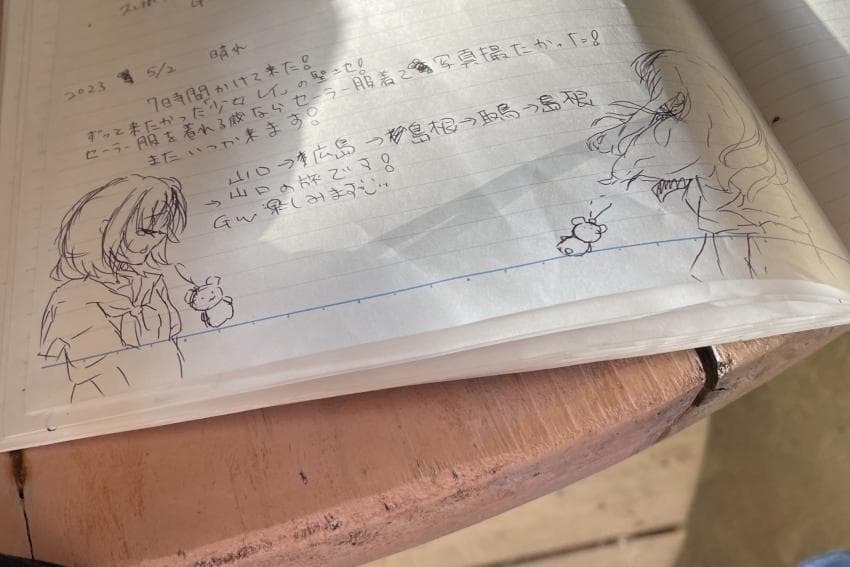 2023 5/2 晴れ
7時間かけて来た!
ずっと来たかった「少女レイ」の聖地!
セーラー服を着れる歳ならセーラー服着て写真撮たかった!
またいつか来ます!
山口→広島→島根→鳥取→島根
→山口の旅です!
GW楽しみます